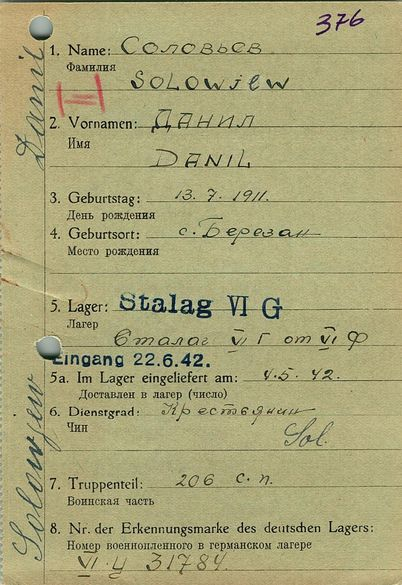 376
1. Name: Соловьев
Фамилия
SOLOWJEW
2. Vornamen: Данил
Имя
DANIL
3. Geburtstag: 13. 7. 1911.
День рождения
4. Geburtsort: с. Березан
Место рождения
5. Lager: Stalag VI G
Лагер
Сталаг VI Г от VI Ф
Eingang 22.6.42.
5a. Im Lager eingeliefert am: 4. 5. 42.
Доставлен в лагер (число)
6. Dienstgrad: Крестьянин
Чин
Sol.
7. Truppenteil: 206 с. п.
Воинская часть
8. Nr. der Erkennungsmarke des deutschen Lagers:
Номер военнопленного в германском лагере
VI Ц 31784
Solowjew Danil